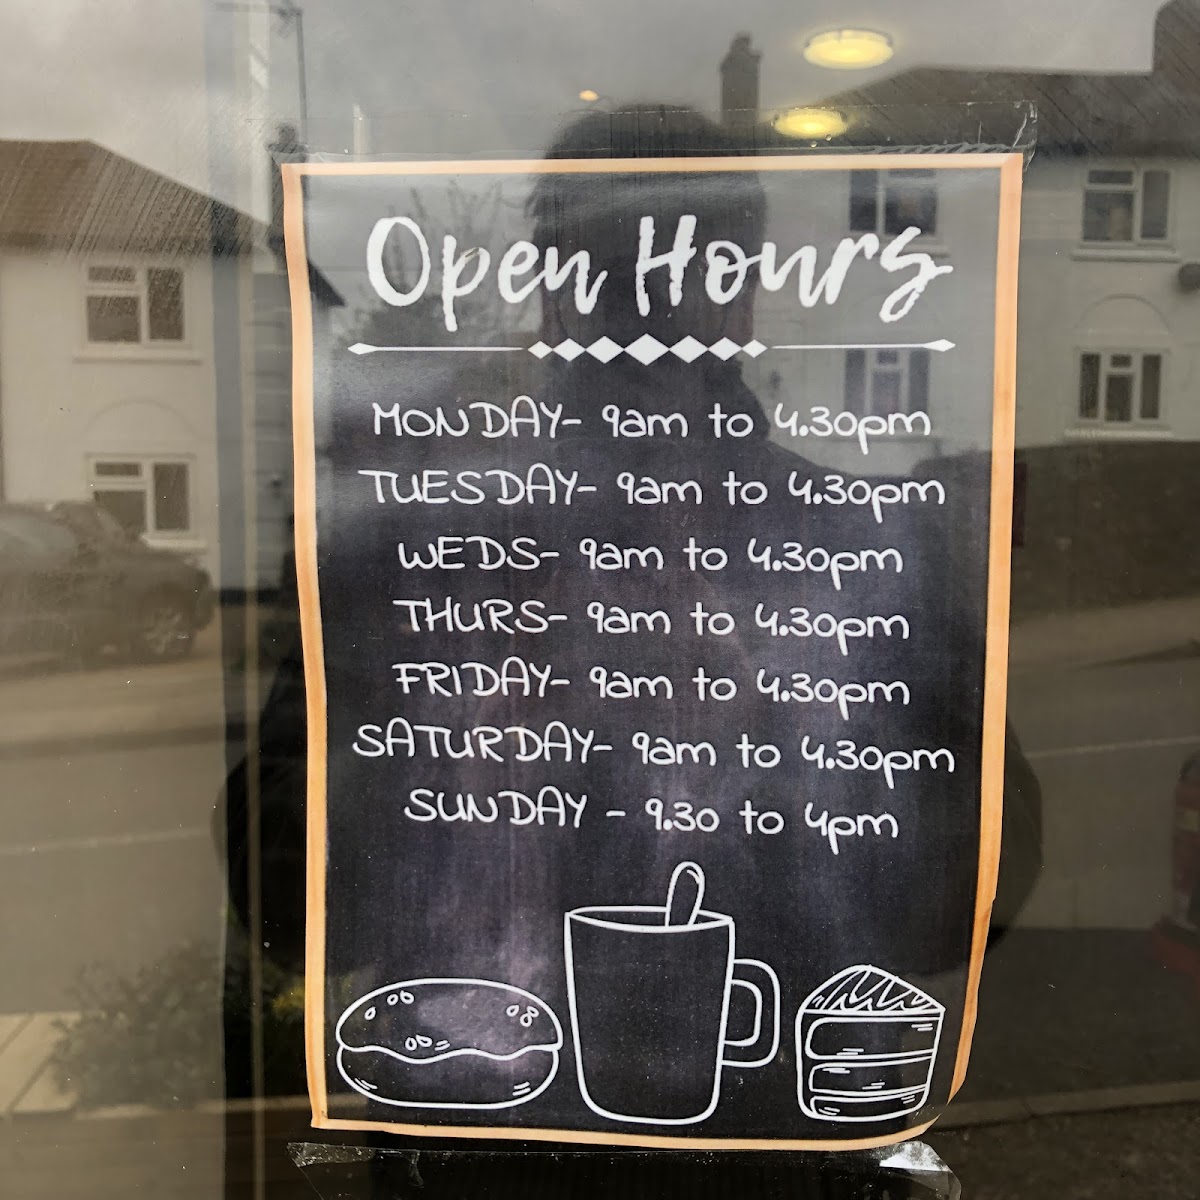 Open Hours
MONDAY- 9am to 4.30pm
TUESDAY- 9am to 4.30pm
WEDS- 9am to 4.30pm
THURS- 9am to 4.30pm
FRIDAY- 9am to 4.30pm
SATURDAY- 9am to 4.30pm
SUNDAY - 9.30 to 4pm